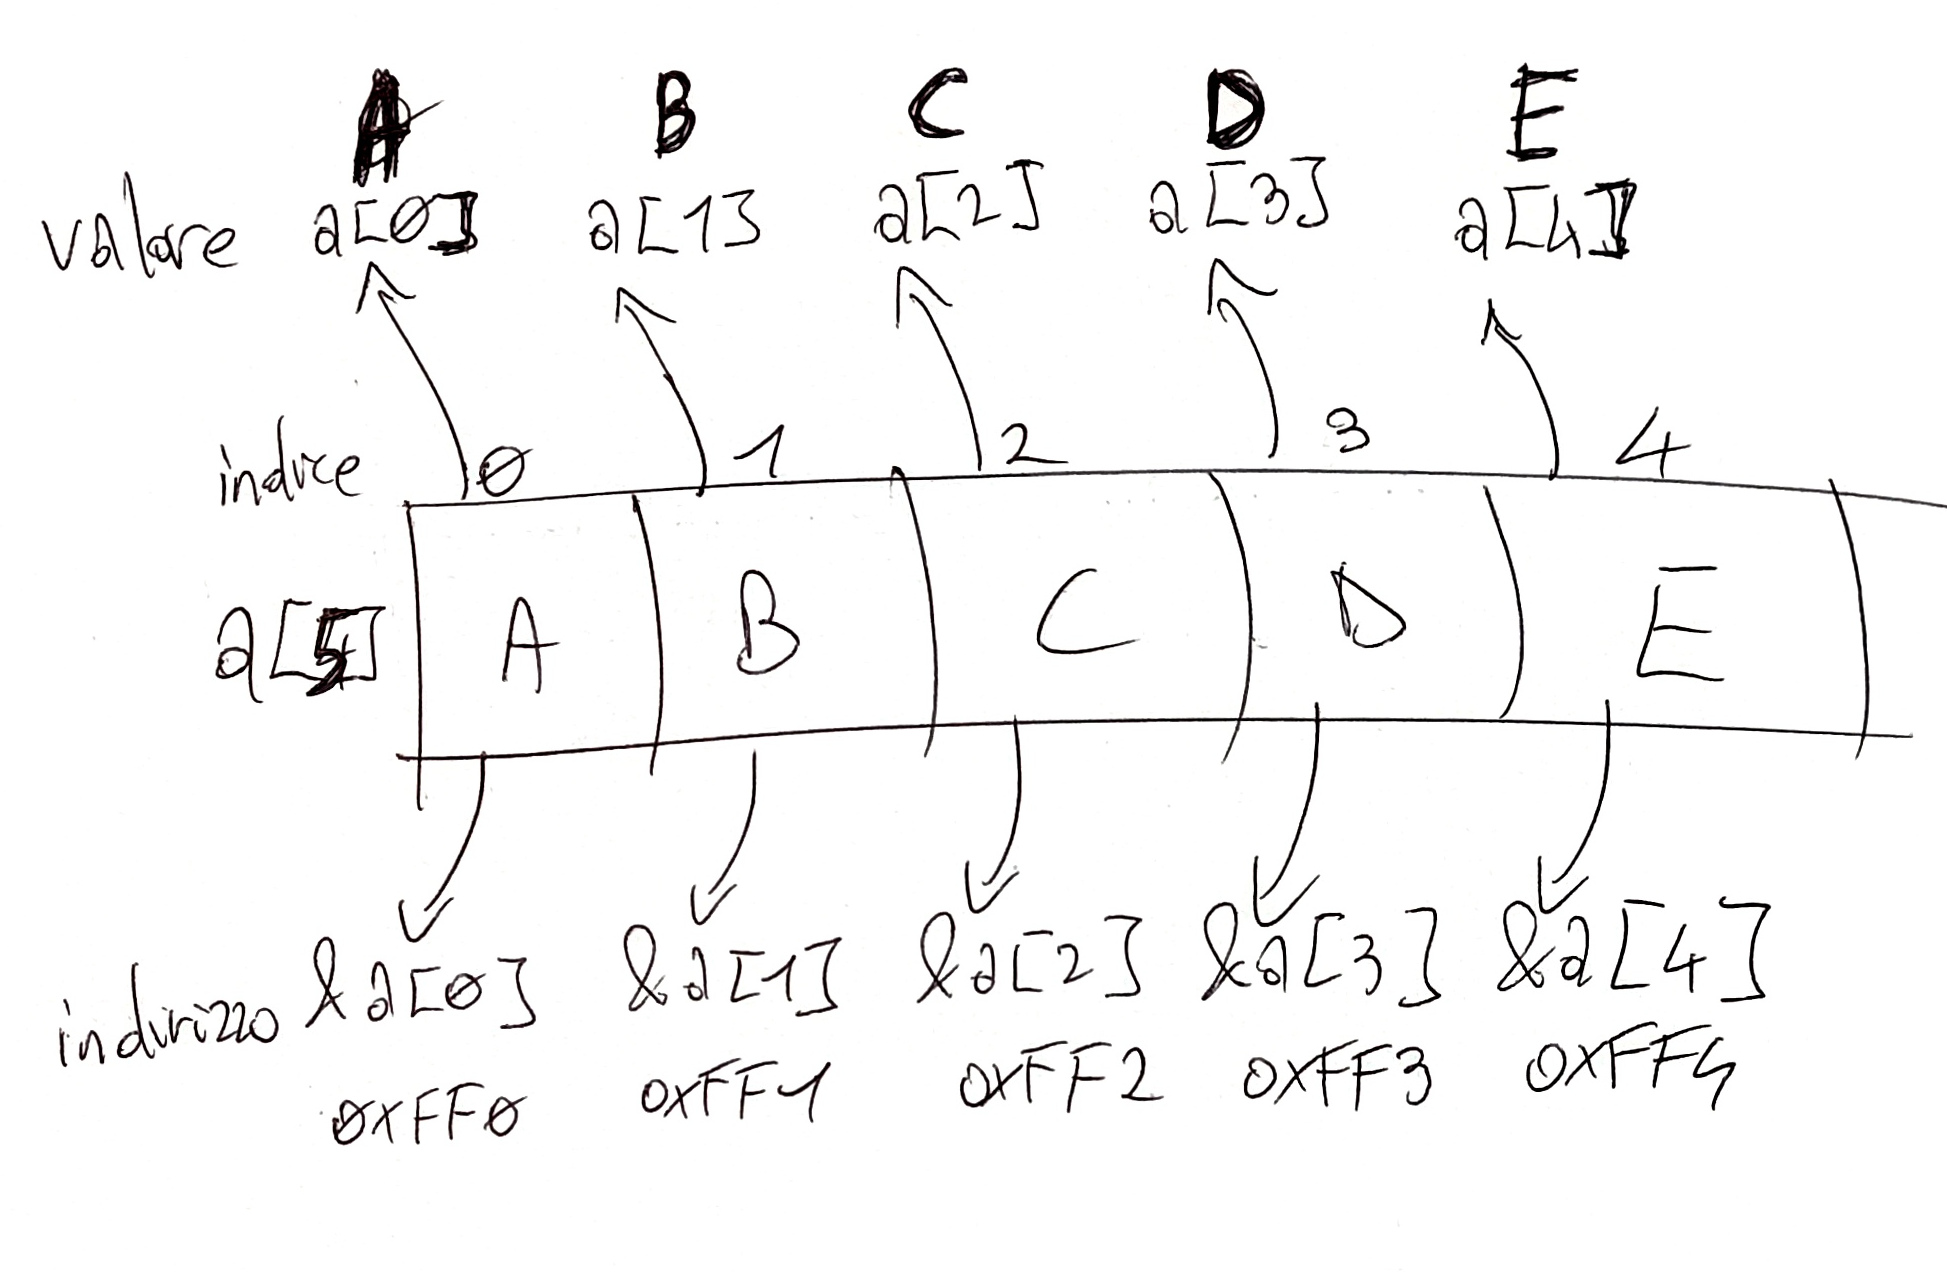 A B C D E
valore a[0] a[1] a[2] a[3] a[4]
indice 0 1 2 3 4
a[5] A B C D E
indirizzo &a[0] &a[1] &a[2] &a[3] &a[4]
0xFF0 0xFF1 0xFF2 0xFF3 0xFF4